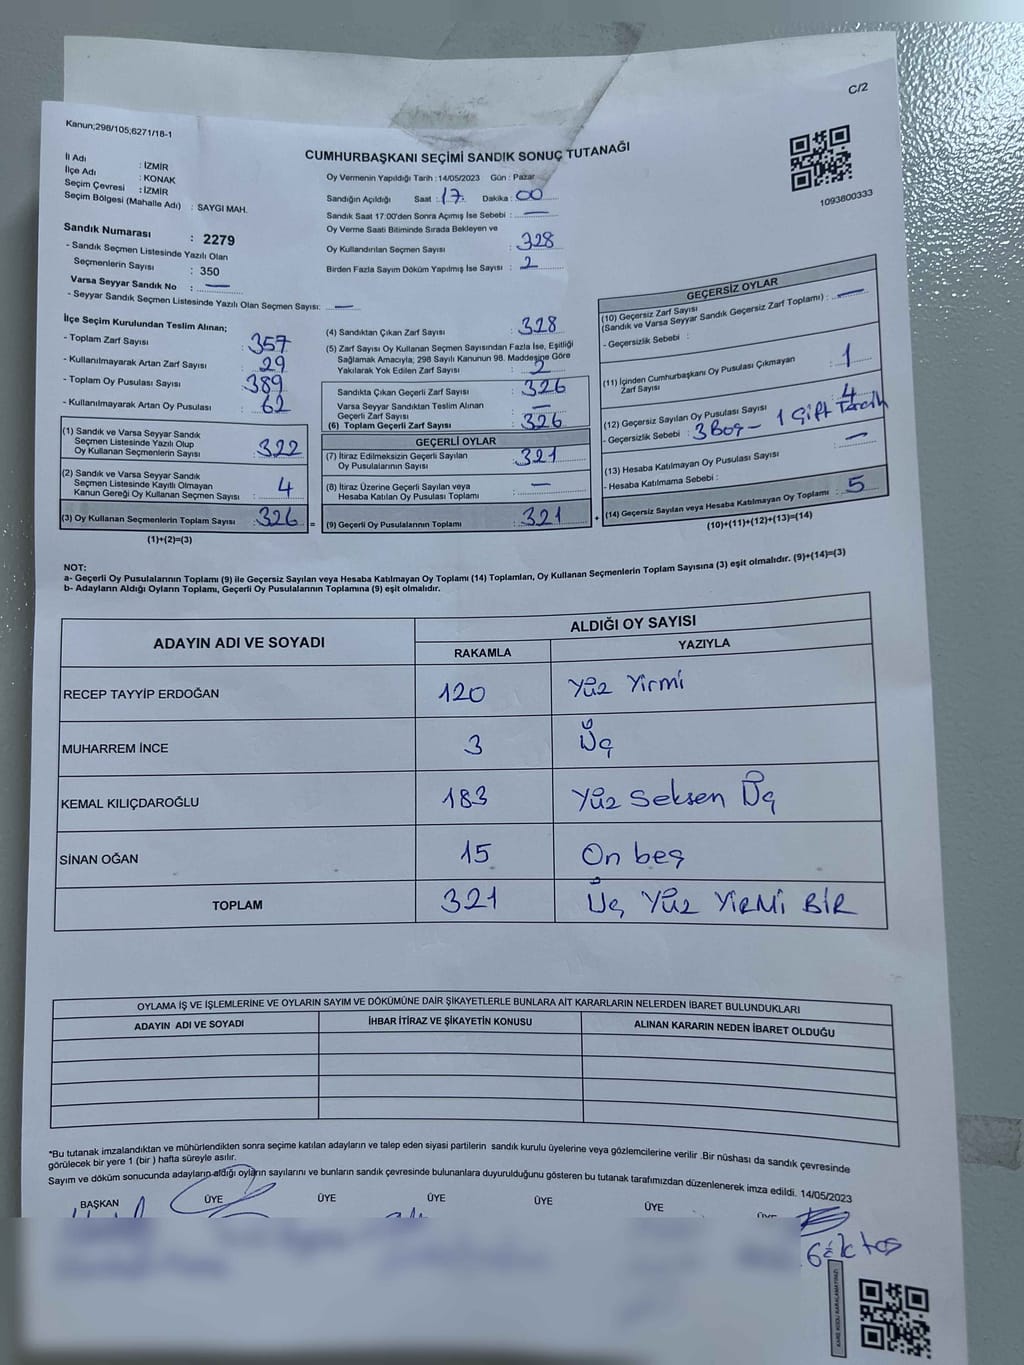 C/2
Kanun;298/105;6271/18-1
CUMHURBAŞKANI SEÇİMİ SANDIK SONUÇ TUTANAĞI
1093800333
İl Adı : İZMİR
İlçe Adı : KONAK
Seçim Çevresi : İZMİR
Seçim Bölgesi (Mahalle Adı) : SAYGI MAH.
Sandık Numarası : 2279
- Sandık Seçmen Listesinde Yazılı Olan
Seçmenlerin Sayısı : 350
Varsa Seyyar Sandık No : —
- Seyyar Sandık Seçmen Listesinde Yazılı Olan Seçmen Sayısı: —
Oy Vermenin Yapıldığı Tarih : 14/05/2023 Gün : Pazar
Sandığın Açıldığı Saat : 17 Dakika : 00
Sandık Saat 17:00'den Sonra Açımış İse Sebebi : —
Oy Verme Saati Bitiminde Sırada Bekleyen ve
Oy Kullandırılan Seçmen Sayısı : 328
Birden Fazla Sayım Döküm Yapılmış İse Sayısı : 2
İlçe Seçim Kurulundan Teslim Alınan;
- Toplam Zarf Sayısı : 357
- Kullanılmayarak Artan Zarf Sayısı : 29
- Toplam Oy Pusulası Sayısı : 389
- Kullanılmayarak Artan Oy Pusulası : 62
(1) Sandık ve Varsa Seyyar Sandık
Seçmen Listesinde Yazılı Olup
Oy Kullanan Seçmenlerin Sayısı : 322
(2) Sandık ve Varsa Seyyar Sandık
Seçmen Listesinde Kayıtlı Olmayan
Kanun Gereği Oy Kullanan Seçmen Sayısı : 4
(3) Oy Kullanan Seçmenlerin Toplam Sayısı : 326 =
(1)+(2)=(3)
(4) Sandıktan Çıkan Zarf Sayısı : 328
(5) Zarf Sayısı Oy Kullanan Seçmen Sayısından Fazla İse, Eşitliği
Sağlamak Amacıyla, 298 Sayılı Kanunun 98. Maddesine Göre
Yakılarak Yok Edilen Zarf Sayısı : 2
Sandıkta Çıkan Geçerli Zarf Sayısı : 326
Varsa Seyyar Sandıktan Teslim Alınan
Geçerli Zarf Sayısı : —
(6) Toplam Geçerli Zarf Sayısı : 326
GEÇERLİ OYLAR
(7) İtiraz Edilmeksizin Geçerli Sayılan
Oy Pusulalarının Sayısı : 321
(8) İtiraz Üzerine Geçerli Sayılan veya
Hesaba Katılan Oy Pusulası Toplamı : —
(9) Geçerli Oy Pusulalarının Toplamı : 321 +
GEÇERSİZ OYLAR
(10) Geçersiz Zarf Sayısı
(Sandık ve Varsa Seyyar Sandık Geçersiz Zarf Toplamı) : —
- Geçersizlik Sebebi :
(11) İçinden Cumhurbaşkanı Oy Pusulası Çıkmayan
Zarf Sayısı : 1
(12) Geçersiz Sayılan Oy Pusulası Sayısı : 4
- Geçersizlik Sebebi : 3 Boş - 1 Çift Tercih
(13) Hesaba Katılmayan Oy Pusulası Sayısı : —
- Hesaba Katılmama Sebebi :
(14) Geçersiz Sayılan veya Hesaba Katılmayan Oy Toplamı : 5
(10)+(11)+(12)+(13)=(14)
NOT:
a- Geçerli Oy Pusulalarının Toplamı (9) ile Geçersiz Sayılan veya Hesaba Katılmayan Oy Toplamı (14) Toplamları, Oy Kullanan Seçmenlerin Toplam Sayısına (3) eşit olmalıdır. (9)+(14)=(3)
b- Adayların Aldığı Oyların Toplamı, Geçerli Oy Pusulalarının Toplamına (9) eşit olmalıdır.
ADAYIN ADI VE SOYADI ALDIĞI OY SAYISI
RAKAMLA YAZIYLA
RECEP TAYYİP ERDOĞAN 120 Yüz Yirmi
MUHARREM İNCE 3 Üç
KEMAL KILIÇDAROĞLU 183 Yüz Seksen Üç
SİNAN OĞAN 15 On beş
TOPLAM 321 Üç Yüz YİRMİ BİR
OYLAMA İŞ VE İŞLEMLERİNE VE OYLARIN SAYIM VE DÖKÜMÜNE DAİR ŞİKAYETLERLE BUNLARA AİT KARARLARIN NELERDEN İBARET BULUNDUKLARI
ADAYIN ADI VE SOYADI İHBAR İTİRAZ VE ŞİKAYETİN KONUSU ALINAN KARARIN NEDEN İBARET OLDUĞU
*Bu tutanak imzalandıktan ve mühürlendikten sonra seçime katılan adayların ve talep eden siyasi partilerin sandık kurulu üyelerine veya gözlemcilerine verilir .Bir nüshası da sandık çevresinde
görülecek bir yere 1 (bir ) hafta süreyle asılır.
Sayım ve döküm sonucunda adayların aldığı oyların sayılarını ve bunların sandık çevresinde bulunanlara duyurulduğunu gösteren bu tutanak tarafımızdan düzenlenerek imza edildi. 14/05/2023
BAŞKAN ÜYE ÜYE ÜYE ÜYE ÜYE